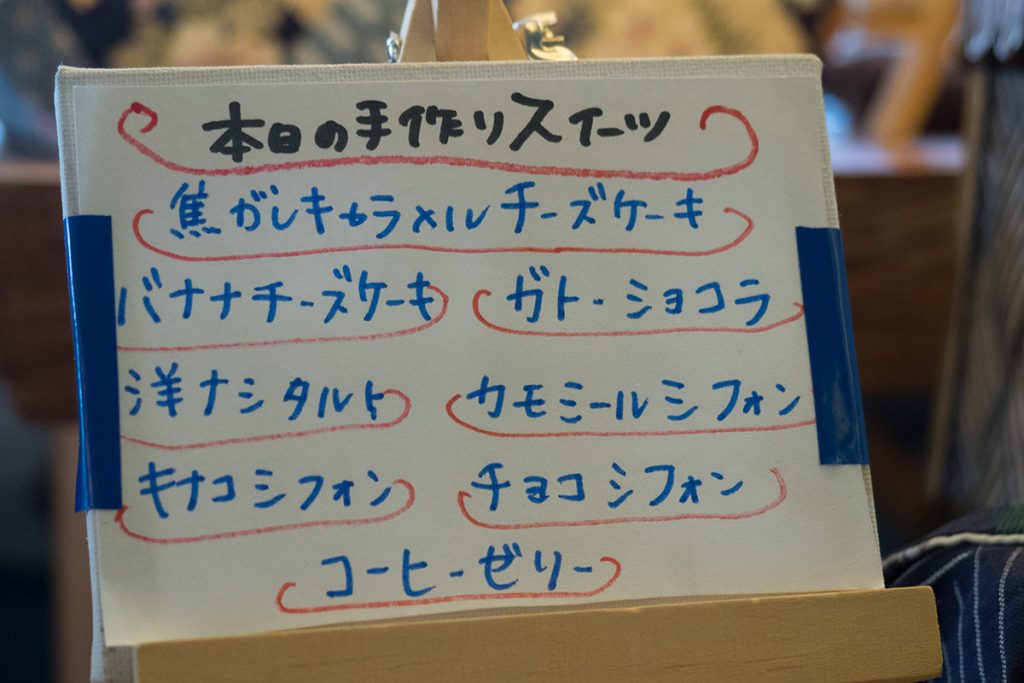 本日の手作りスイーツ
焦がしキャラメルチーズケーキ
バナナチーズケーキ ガトーショコラ
洋ナシタルト カモミールシフォン
キナコシフォン チョコシフォン
コーヒーゼリー